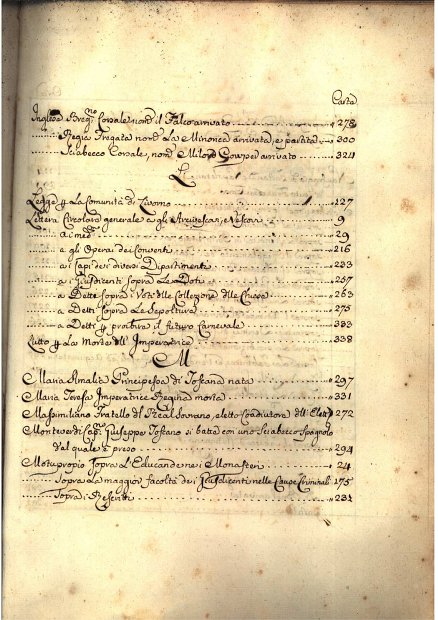 Carta
Inglese Brig.no Corsale nom.o il Falco arrivato 278
Regia Fregata nom.a La Minorca arrivata, e partita 300
Sciabecco Corsale, nom.o Milord Cowper arrivato 321
L
Legge La Comunità di Livorno 127
Lettera Circolare generale a gli Arcivescovi, e Vescovi 9
a i med.i 29
a gli Operai dei Conventi 216
a i Capi dei diversi Dipartimenti 233
a i Giusdicenti sopra Le Doti 257
a Detti sopra i Voti alla Collezione delle Chiese 263
a Detti sopra Le Sepolture 275
a Detti proibire il futuro Carnevale 333
Lutto La Morte dell' Imperatrice 338
M
Maria Amalia Principessa di Toscana nata 297
Maria Teresa Imperatrice Regina morta 331
Massimiliano Fratello del Real Sovrano, eletto Coadiutore dell' Elett.e 272
Monteverdi Cap.no Giuseppe Toscano si batte con uno Sciabecco Spagnolo
dal quale è preso 294
Motuproprio sopra L'Educande nei Monasteri 24
Sopra La maggior facoltà dei Giusdicenti nelle Cause Criminali 175
Sopra i Rescritti 231